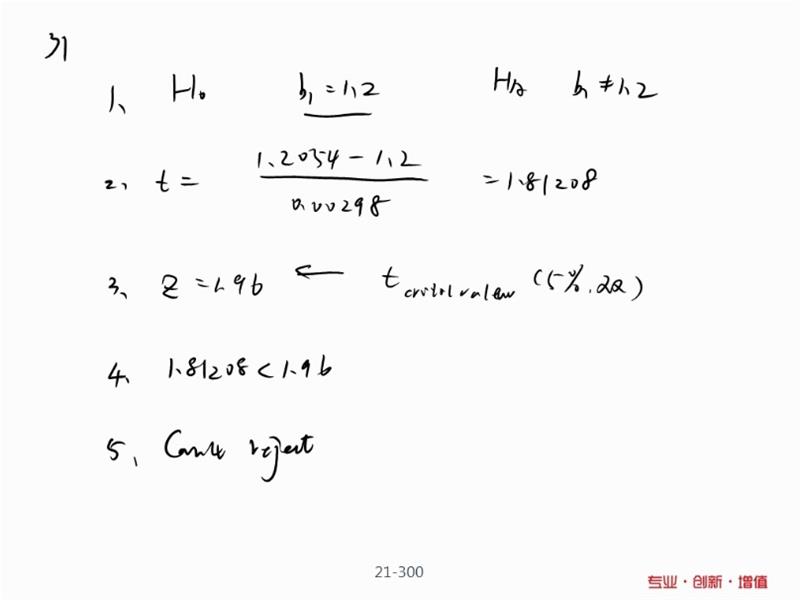 31
1、 H₀ b₁ = 1.2 Ha b₁ ≠ 1.2
2、 t = (1.2054 - 1.2) / 0.00298 = 1.81208
3、 Z = 1.96 ← t critical value (5%, 22)
4、 1.81208 < 1.96
5、 reject
21-300
专业·创新·增值